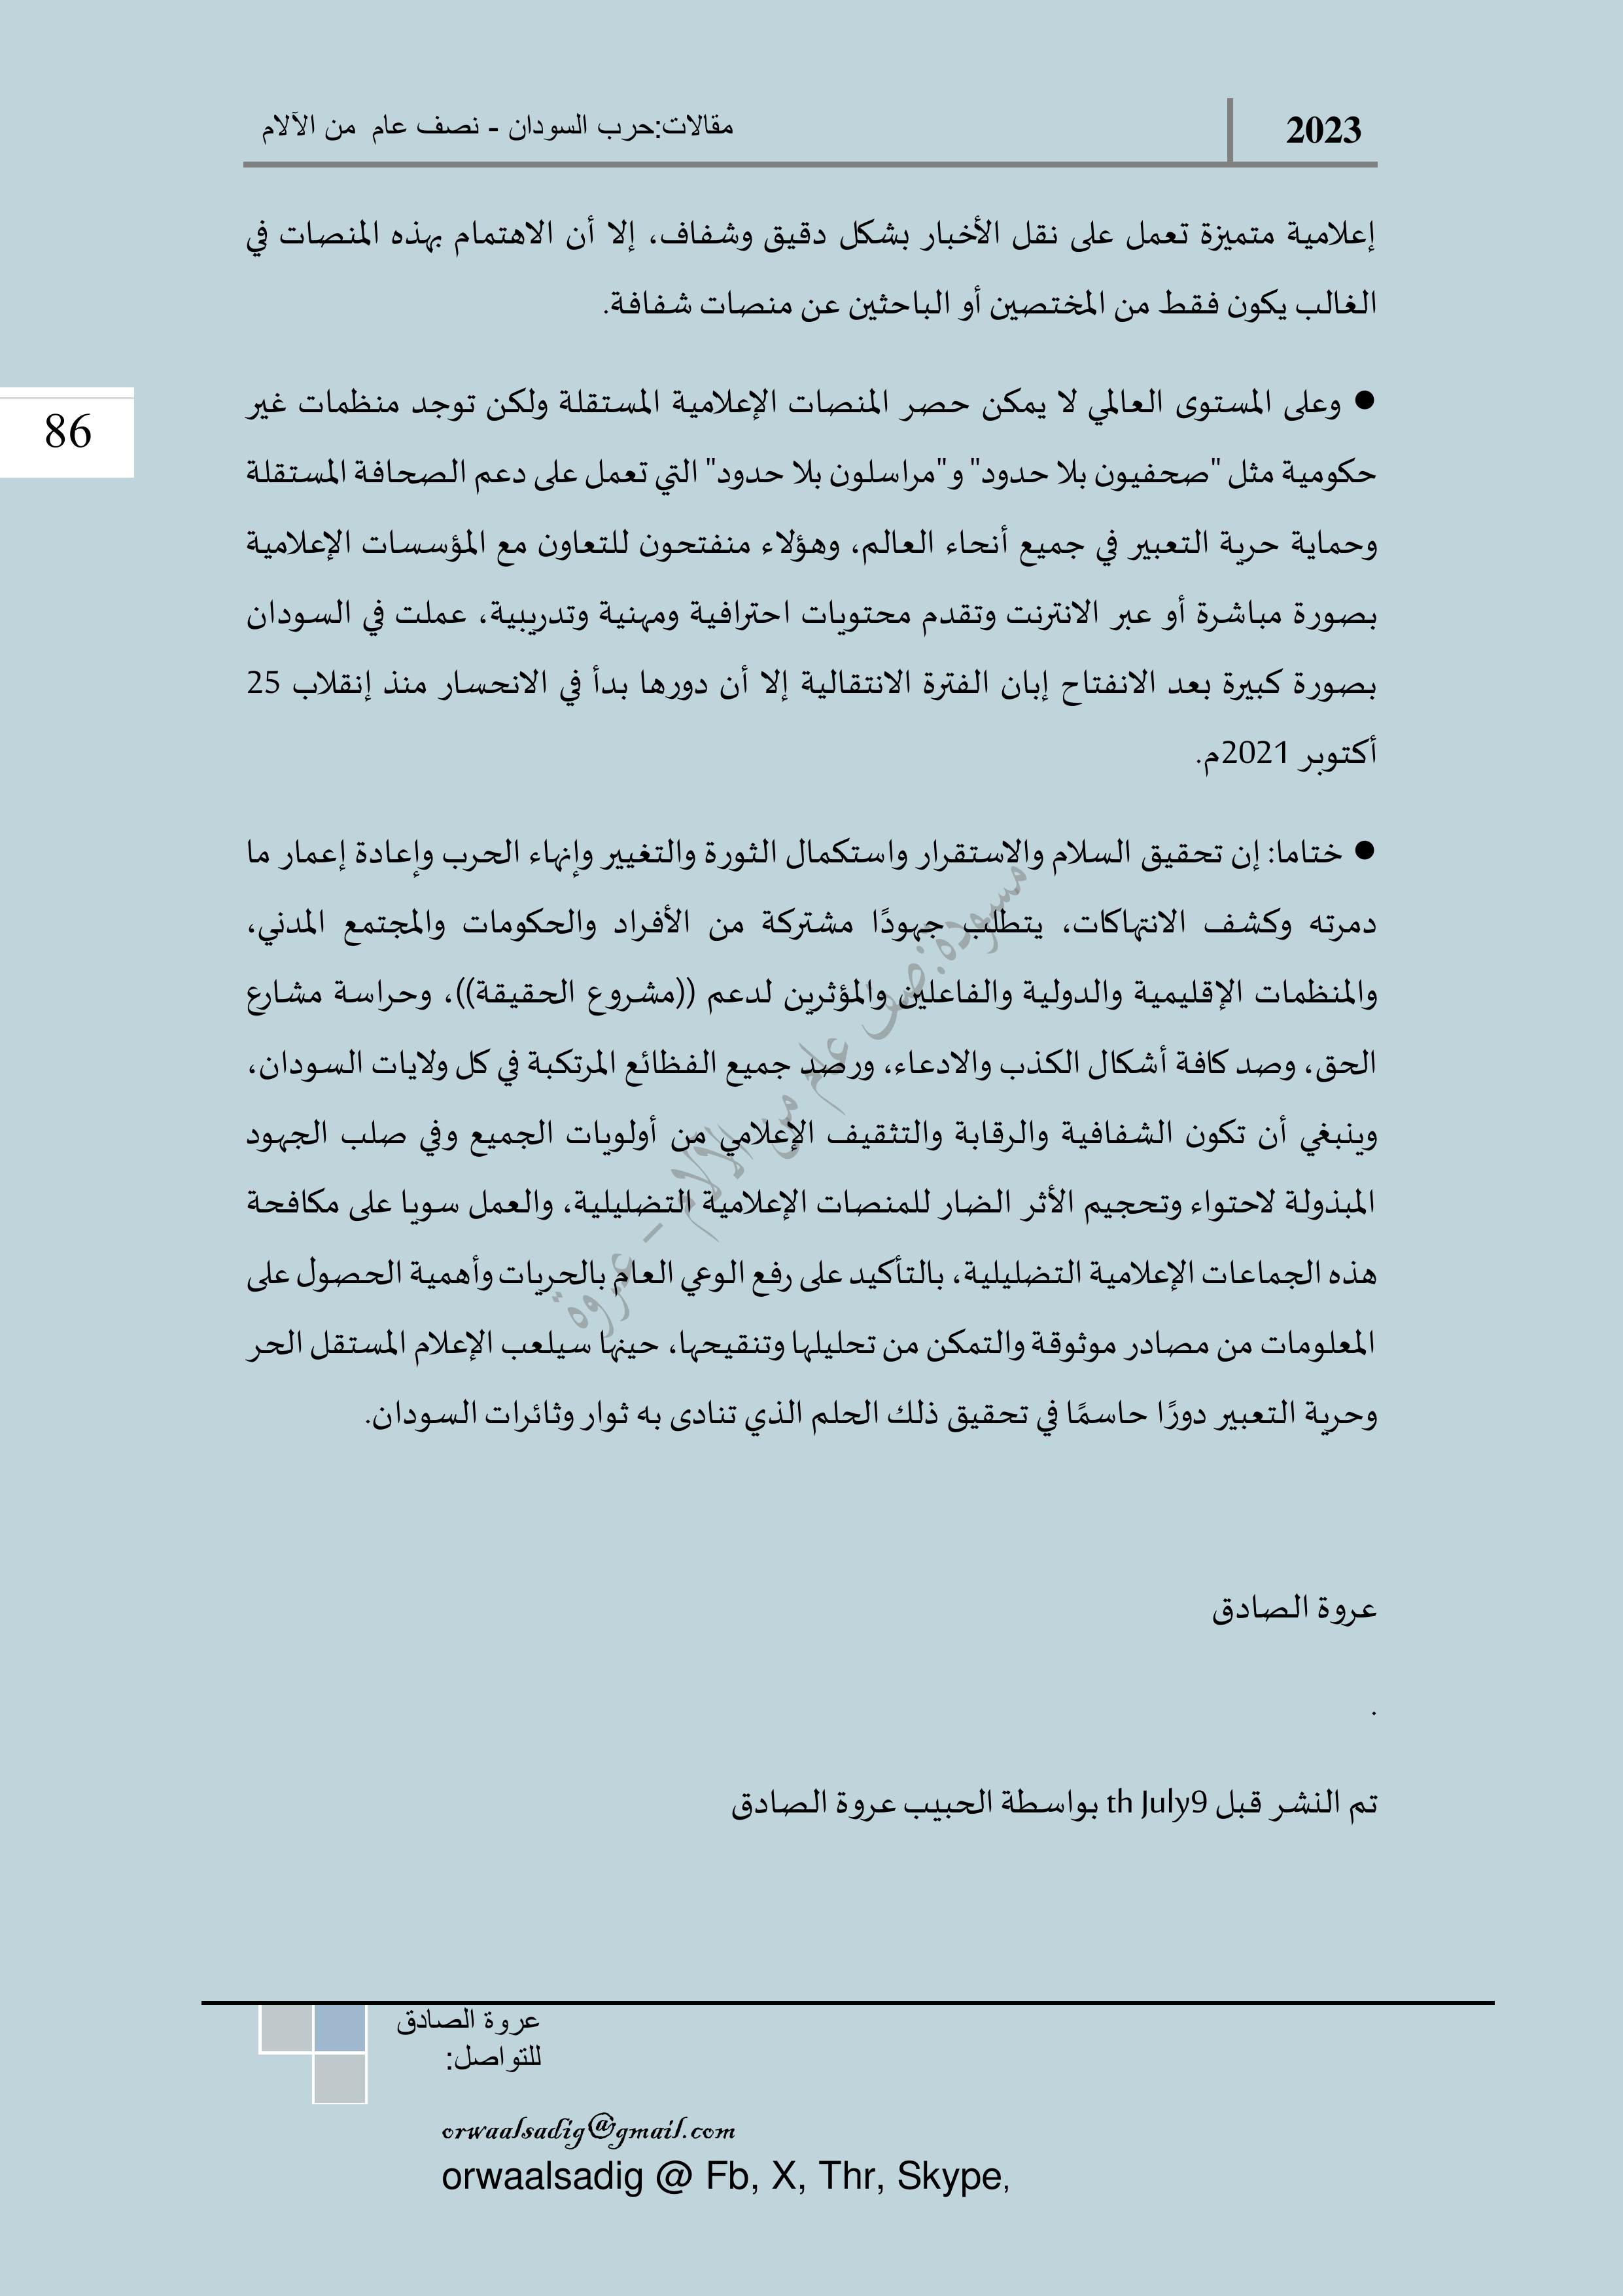 2023
مقالات:حرب السودان - نصف عام من الآلام
إعلامية متميزة تعمل على نقل الأخبار بشكل دقيق وشفاف، إلا أن الاهتمام بهذه المنصات في
الغالب يكون فقط من المختصين أو الباحثين عن منصات شفافة.
86
● وعلى المستوى العالمي لا يمكن حصر المنصات الإعلامية المستقلة ولكن توجد منظمات غير
حكومية مثل "صحفيون بلا حدود" و"مراسلون بلا حدود" التي تعمل على دعم الصحافة المستقلة
وحماية حرية التعبير في جميع أنحاء العالم، وهؤلاء منفتحون للتعاون مع المؤسسات الإعلامية
بصورة مباشرة أو عبر الانترنت وتقدم محتويات احترافية ومهنية وتدريبية، عملت في السودان
بصورة كبيرة بعد الانفتاح إبان الفترة الانتقالية إلا أن دورها بدأ في الانحسار منذ إنقلاب 25
أكتوبر 2021م.
● ختاما: إن تحقيق السلام والاستقرار واستكمال الثورة والتغيير وإنهاء الحرب وإعادة إعمار ما
دمرته وكشف الانتهاكات، يتطلب جهودًا مشتركة من الأفراد والحكومات والمجتمع المدني،
والمنظمات الإقليمية والدولية والفاعلين والمؤثرين لدعم ((مشروع الحقيقة))، وحراسة مشارع
الحق، وصد كافة أشكال الكذب والادعاء، ورصد جميع الفظائع المرتكبة في كل ولايات السودان،
وينبغي أن تكون الشفافية والرقابة والتثقيف الإعلامي من أولويات الجميع وفي صلب الجهود
المبذولة لاحتواء وتحجيم الأثر الضار للمنصات الإعلامية التضليلية، والعمل سويا على مكافحة
هذه الجماعات الإعلامية التضليلية، بالتأكيد على رفع الوعي العام بالحريات وأهمية الحصول على
المعلومات من مصادر موثوقة والتمكن من تحليلها وتنقيحها، حينها سيلعب الإعلام المستقل الحر
وحرية التعبير دورًا حاسمًا في تحقيق ذلك الحلم الذي تنادى به ثوار وثائرات السودان.
مسودة:نصف عام من الآلام – عروة
عروة الصادق
.
تم النشر قبل 9th July بواسطة الحبيب عروة الصادق
عروة الصادق
للتواصل:
orwaalsadig@gmail.com
orwaalsadig @ Fb, X, Thr, Skype,